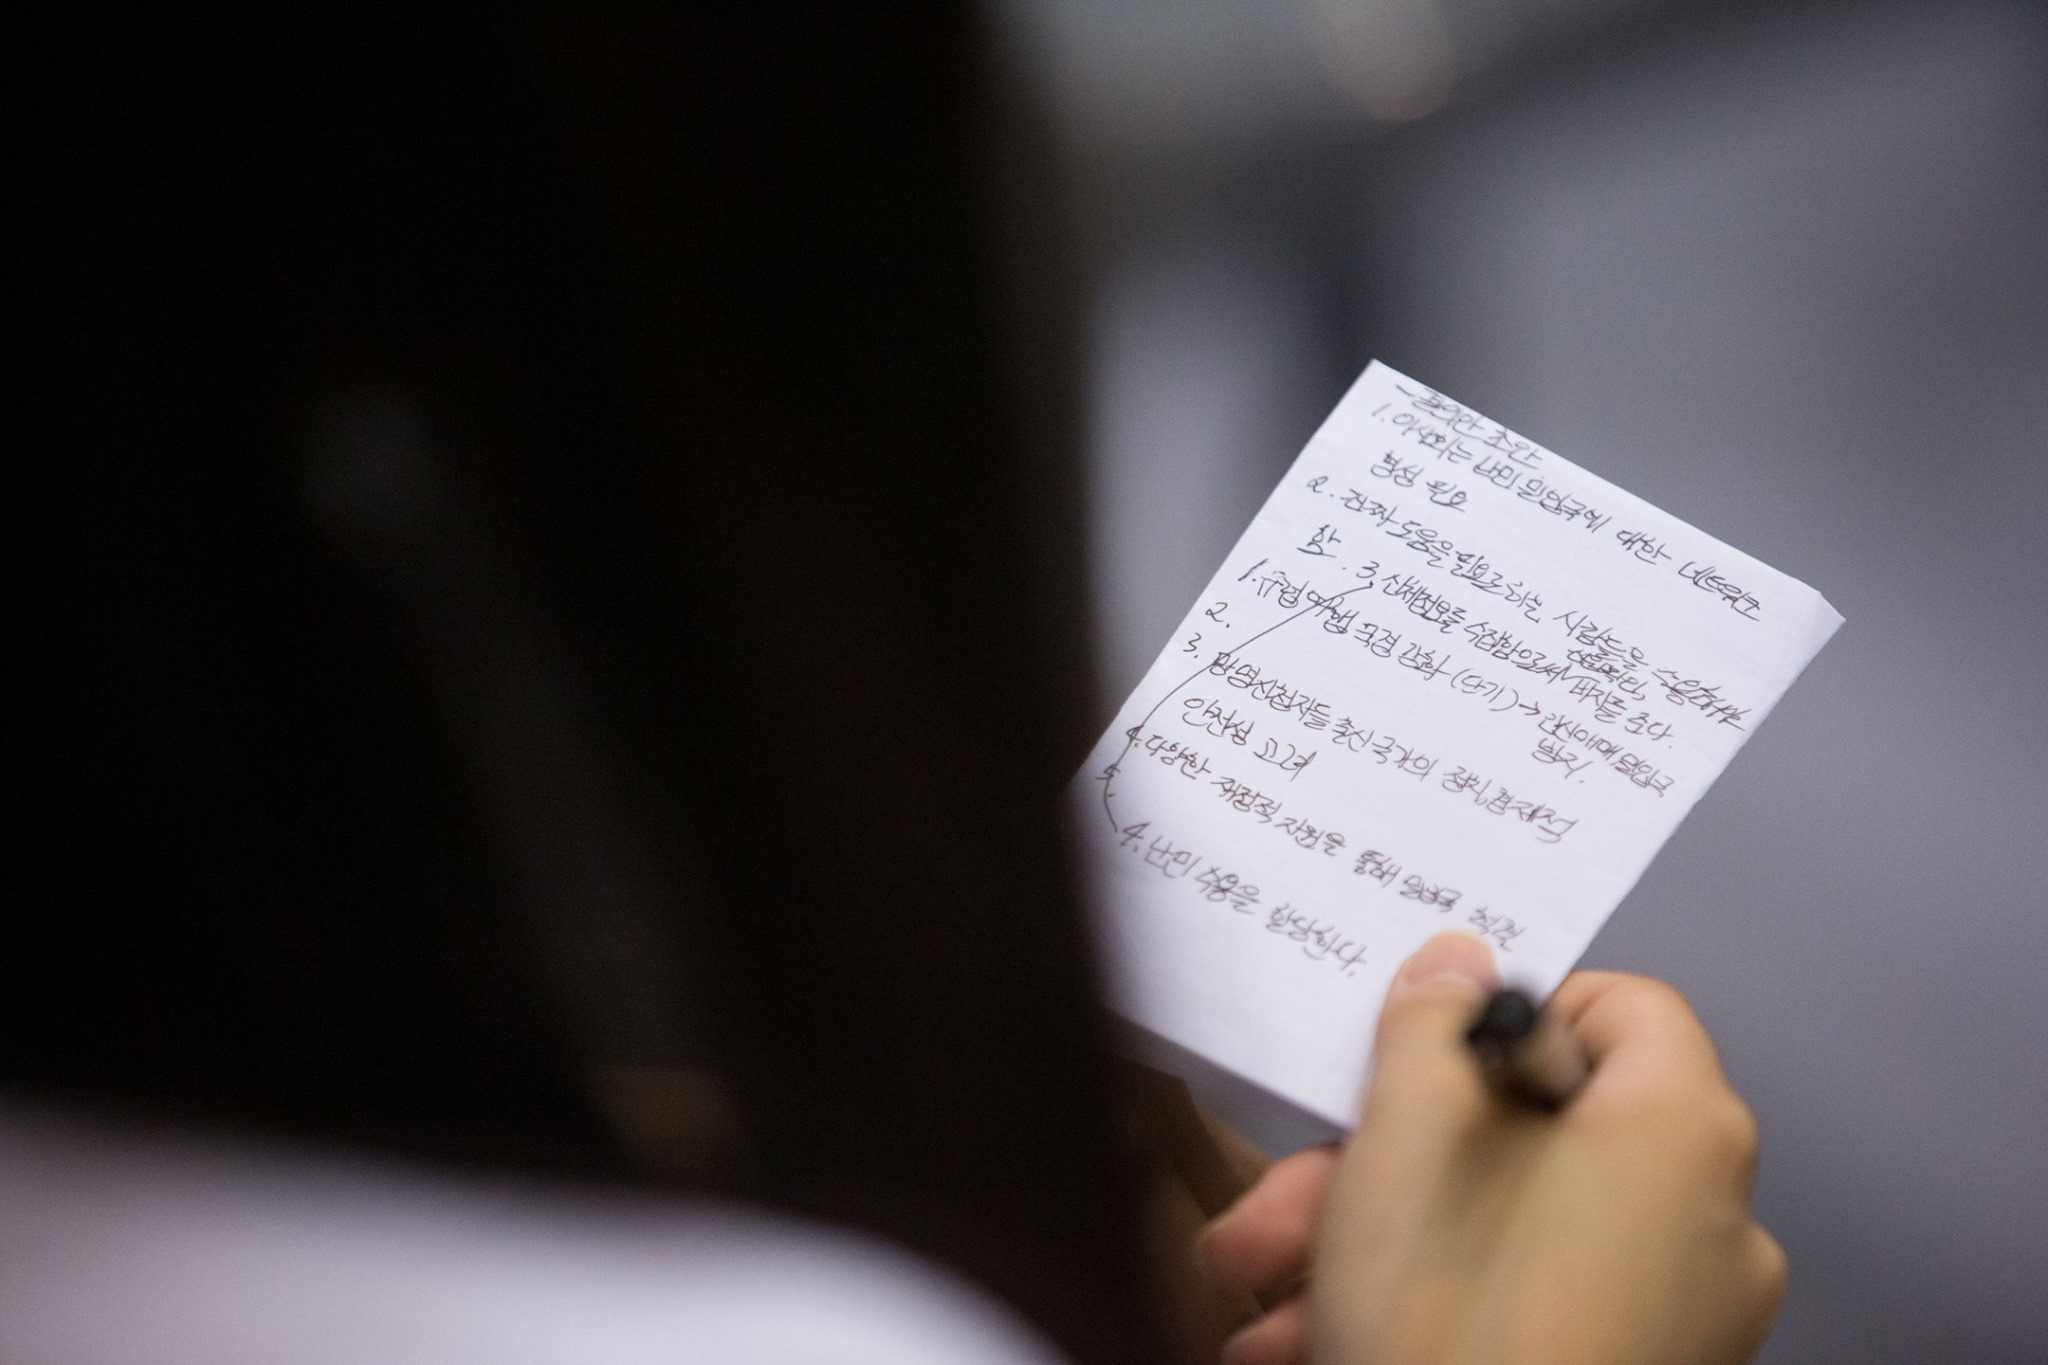 - 결의안 초안
1. 이사회는 난민 밀입국에 대한 네트워크
형성 필요
2. 진짜 도움을 필요로 하는 사람들을 수용해야
함. 3. 신체정보를 수집함으로써 비자를 준다.
1. 유럽 여행 국경 강화 (단기) → 감시아래 밀입국
방지.
2.
3. 망명신청자들 출신 국가의 정치, 경제적
안전성 고려
4. 다양한 재정적 자원을 통해 밀입국 척결
5.
4. 난민 수용을 할당한다.